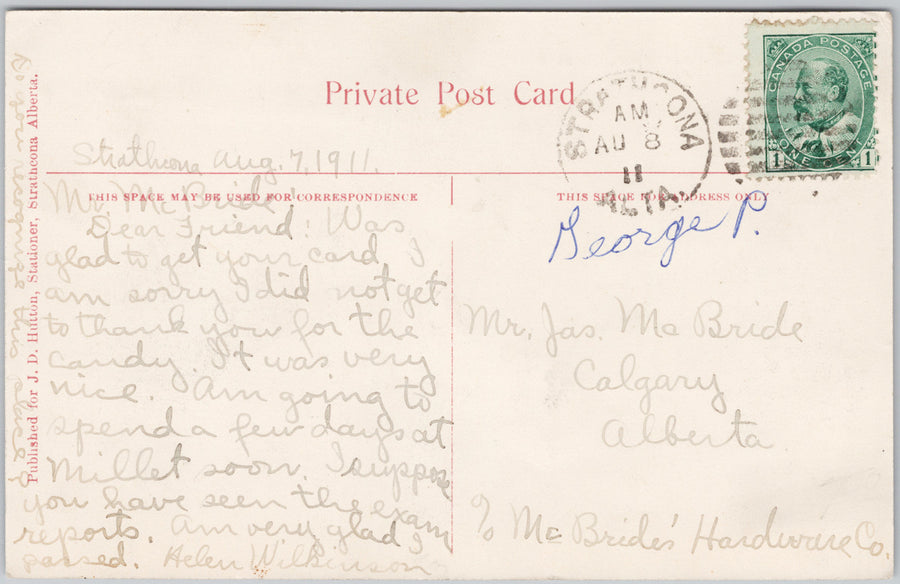 Private Post Card
STRATHCONA
AM
AU 8
11
ALTA.
CANADA POSTAGE
1 ONE CENT 1
Strathcona Aug. 7, 1911.
THIS SPACE MAY BE USED FOR CORRESPONDENCE
Mr. McBride:
Dear Friend: Was
glad to get your card. I
am sorry I did not get
to thank you for the
candy. It was very
nice. Am going to
spend a few days at
Millet soon. I suppose
you have seen the exam
reports. Am very glad I
passed. Helen Wilkinson
Do you recognize this place
THIS SPACE FOR ADDRESS ONLY
George P.
Mr. Jas. McBride
Calgary
Alberta
c/o McBride's Hardware Co.
Published for J. D. Hutton, Stationer, Strathcona Alberta.